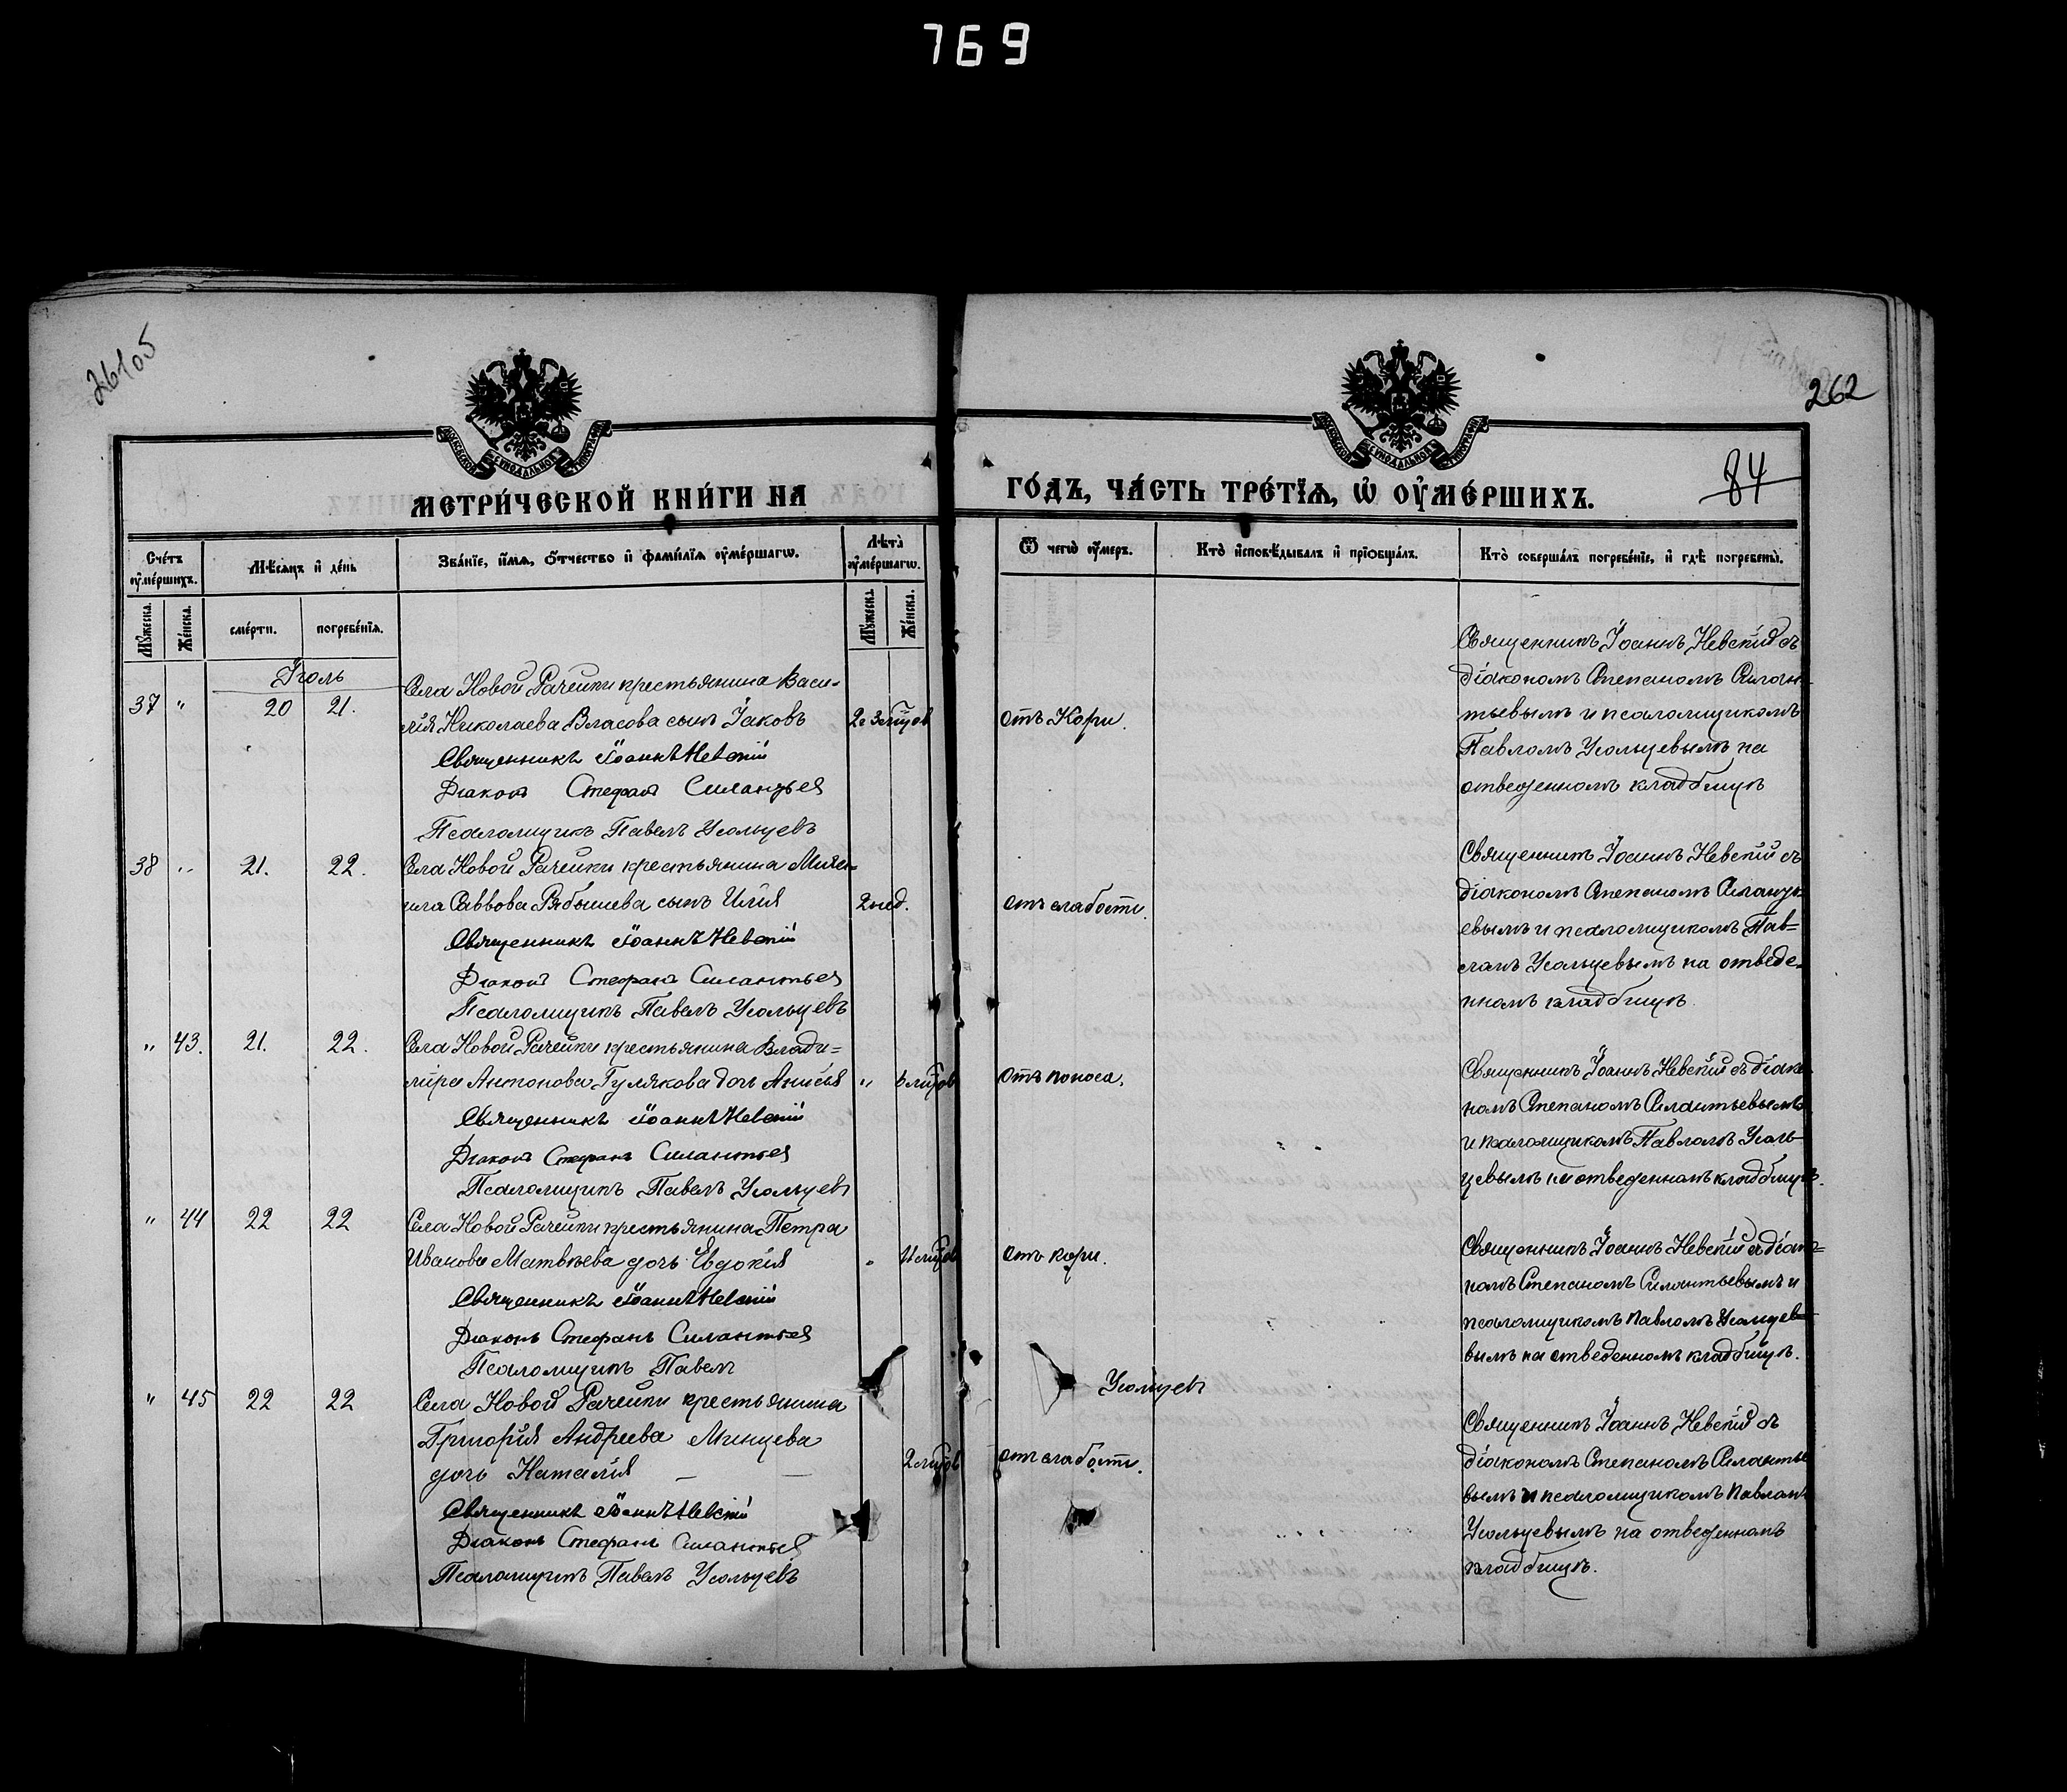 769
26105
262
84
МЕТРИ́ЧЕСКОЙ КНИ́ГИ НА
ГО́ДЪ, ЧА́СТЬ ТРЕ́ТЇѦ, Ѡ҆ ОУ҆МЕ́РШИХЪ.
Сче́тъ оу҆ме́ршихъ.
Мѣ́сѧцъ и҆ де́нь
Зва́нїе, и҆́мѧ, ѻ҆́тчество и҆ фами́лїѧ оу҆ме́ршагѡ.
Лѣ́та̀ оу҆ме́ршагѡ.
Ѿ чегѡ̀ оу҆́меръ.
Кто̀ и҆сповѣ́дывалъ и҆ прїѡбща́лъ.
Кто̀ соверша́лъ погребе́нїе, и҆ гдѣ̀ погребены̀.
Мꙋ́жеска.
Же́нска.
сме́рти.
погребе́нїѧ.
Мꙋ́жеска.
Же́нска.
Іюль
37 " 20 21. Села Новой Рачейки крестьянина Васи-
лія Николаева Власова сынъ Іаковъ
отъ Кори.
Священникъ Іоаннъ Невскій
Діаконъ Стефанъ Силантьев
Псаломщикъ Павелъ Усольцевъ
Священникъ Іоаннъ Невскій съ
діакономъ Степаномъ Силан-
тьевымъ и псаломщикомъ
Павломъ Усольцевымъ на
отведенномъ кладбищѣ
38 " 21. 22. Села Новой Рачейки крестьянина Миха-
ила Саввова Рябышева сынъ Илія 2 нед. отъ слабости.
Священникъ Іоаннъ Невскій
Діаконъ Стефанъ Силантьев
Псаломщикъ Павелъ Усольцевъ
Священникъ Іоаннъ Невскій съ
діакономъ Степаномъ Силанть-
евымъ и псаломщикомъ Пав=
ломъ Усольцевымъ на отведе-
нномъ кладбищѣ.
" 43. 21. 22. Села Новой Рачейки крестьянина Влади=
міра Антонова Гулякова дочь Анисья " отъ поноса.
Священникъ Іоаннъ Невскій
Діаконъ Стефанъ Силантьев
Псаломщикъ Павелъ Усольцевъ
Священникъ Іоаннъ Невскій съ діако-
номъ Степаномъ Силантьевымъ
и псаломщикомъ Павломъ Усоль-
цевымъ на отведенномъ кладбищѣ.
" 44 22 22 Села Новой Рачейки крестьянина Петра
Иванова Матвѣева дочь Евдокія " 11 мѣсцов отъ кори.
Священникъ Іоаннъ Невскій
Діаконъ Стефанъ Силантьев
Псаломщикъ Павелъ
Усольцевъ
Священникъ Іоаннъ Невскій съ діако=
номъ Степаномъ Силантьевымъ и
псаломщикомъ Павломъ Усольцев-
вымъ на отведенномъ кладбищѣ.
" 45 22 22 Села Новой Рачейки крестьянина
Григорія Андреева Минцева
дочь Наталія — — 2 мѣсцов отъ слабости.
Священникъ Іоаннъ Невскій
Діаконъ Стефанъ Силантьев
Псаломщикъ Павелъ Усольцевъ
Священникъ Іоаннъ Невскій съ
діакономъ Степаномъ Силантье
вымъ и псаломщикомъ Павломъ
Усольцевымъ на отведенномъ
кладбищѣ.